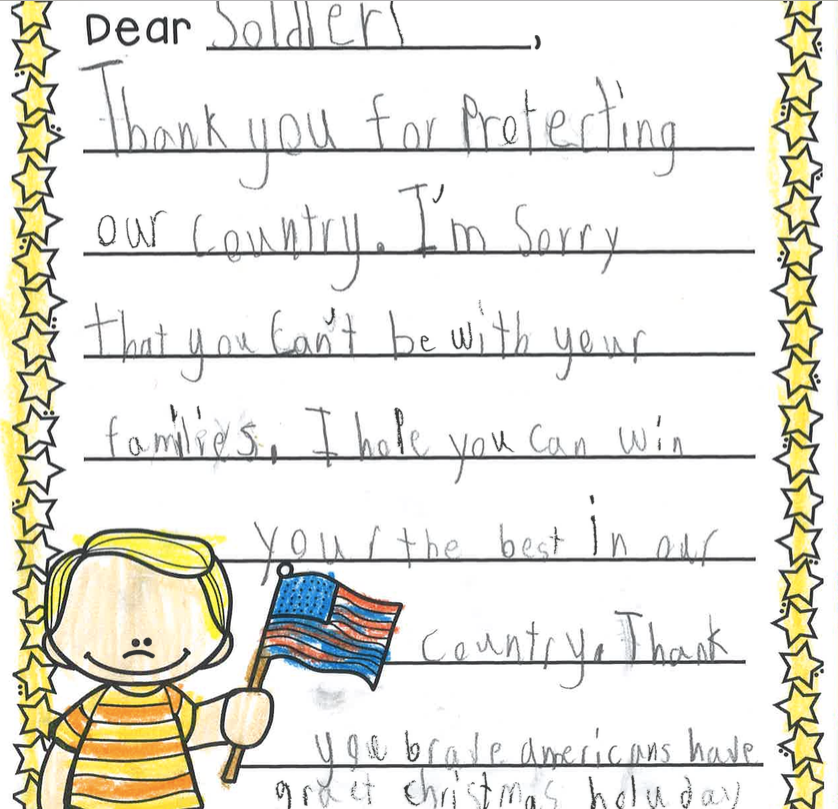 Dear Soldier,
Thank you for Protecting
our Country. I'm Sorry
that you Can't be with your
families. I hope you Can win
your the best in our
Country. Thank
you brave americans have
graet christmas holuday